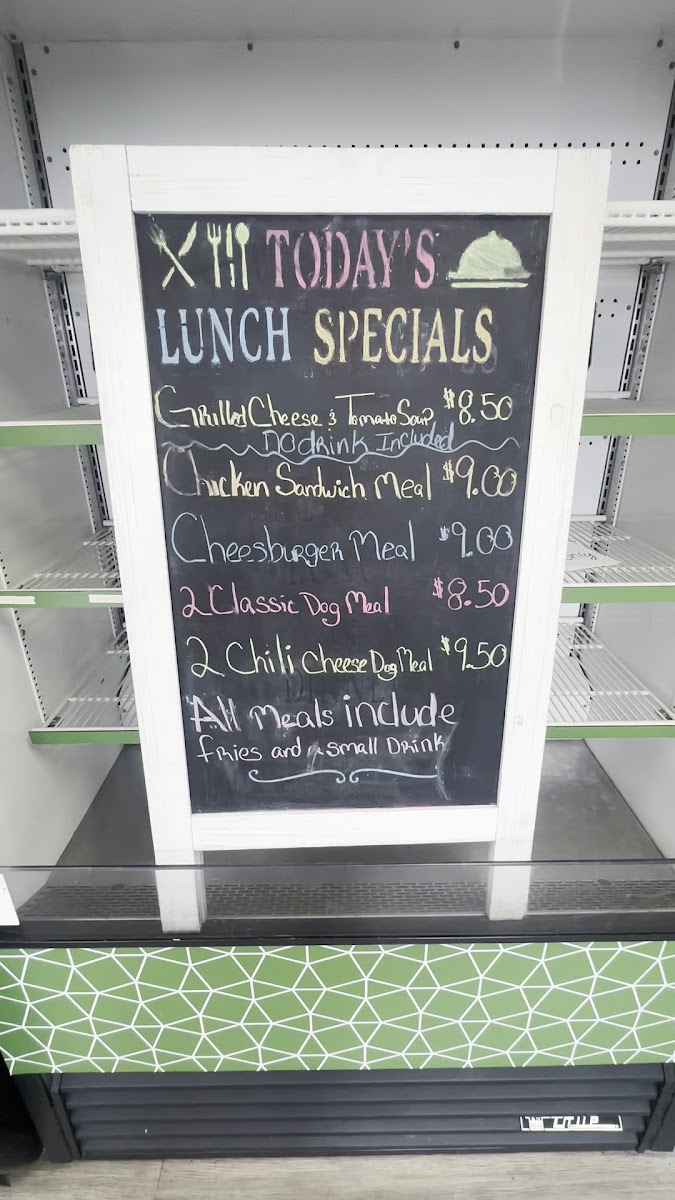 TODAY'S
LUNCH SPECIALS
Grilled Cheese & Tomato Soup $8.50
No drink Included
Chicken Sandwich Meal $9.00
Cheesburger Meal $9.00
2 Classic Dog Meal $8.50
2 Chili Cheese Dog Meal $9.50
All Meals include
fries and a small Drink
TRUE